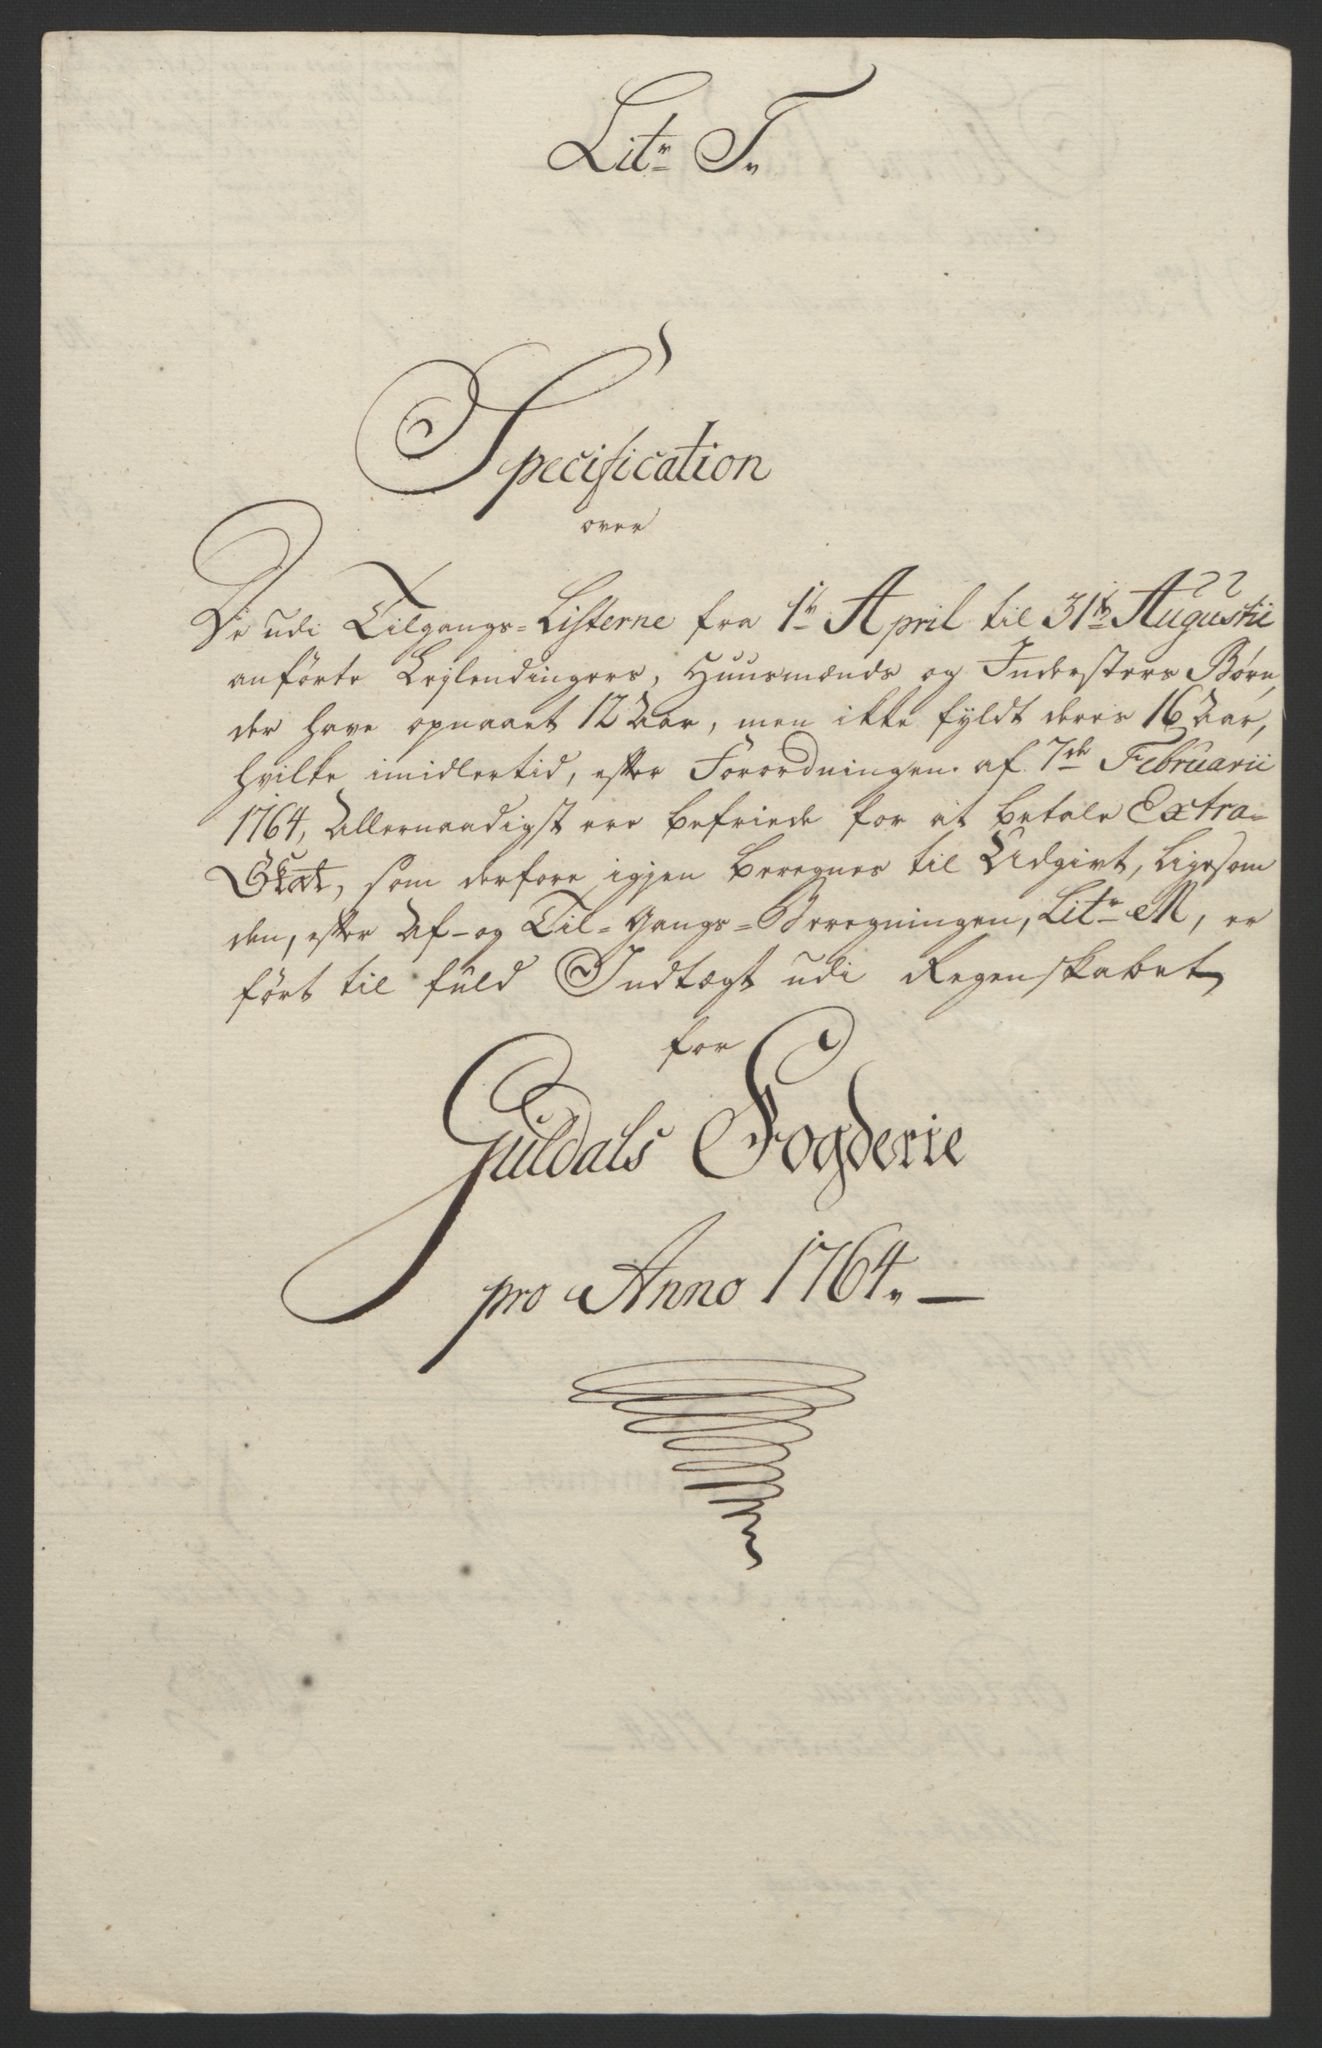 Litr T.
Specification
over
De udi Tilgangs=Listerne fra 1te April til 31te Augustii
anförte Lejlendingers, Huusmænds og Indersters Børn,
der have opnaaet 12 Aar, men ikke fyldt deres 16 Aar,
hvilke imidlertid, efter Forordningen af 7de Februarii
1764, Allernaadigst ere befriede for at betale Extra-
Skat, som derfore igjen beregnes til Udgivt, ligesom
den, efter Af- og Til=Gangs=Beregningen, Litr M, er
fört til fuld Indtægt udi Regenskabet
for
Guldals Fogderie
pro Anno 1764. —